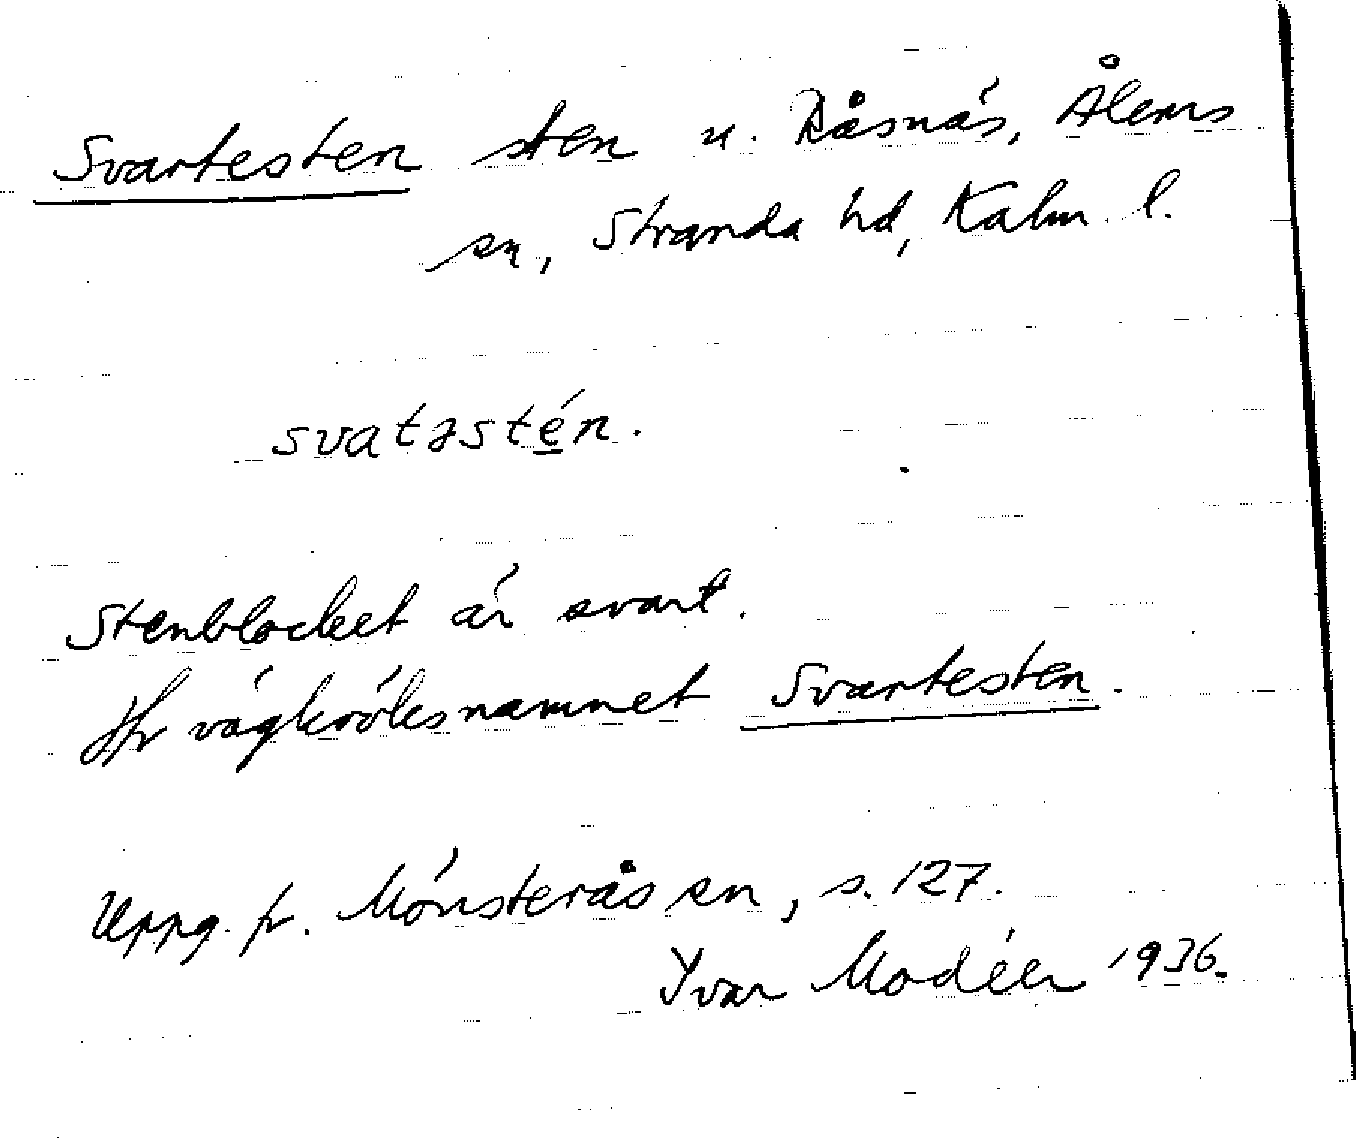 Svartesten sten n. Råsnäs, Ålems
sn, Stranda hd, Kalm. l.
svatəstén.
Stenblocket är svart.
Jfr vägkröksnamnet Svartesten.
Uppg. fr. Mönsterås sn, s. 127.
Yvar Modéer 1936.